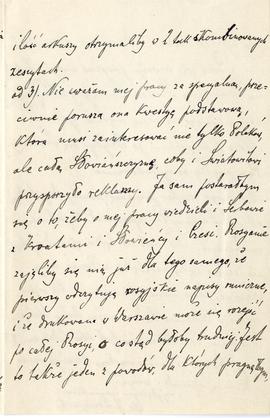 ilość arkuszy otrzymaliby w 1 lub skombinowanych
zeszytach.
ad 3). Nie uważam mej pracy za specjalną, prze-
ciwnie porusza ona kwestyę podstawową,
która musi zainteresować nie tylko Polaków,
ale całą Słowiańszczyznę, coby i Światowitowi
przysporzyło reklamy. Ja sam postarałbym
się o to żeby o mej pracy wiedzieli i Serbowie
z Kroatami i Słoweńcy i Czesi. Rosyanie
zajęliby się nią już dla tego samego, że
pierwszy odczytuję rosyjskie napisy runiczne,
i że drukowana w Warszawie może się rozejść
po całej Rosyi, o co stąd byłoby trudniej. Jest
to także jeden z powodów, dla których pragnąłbym